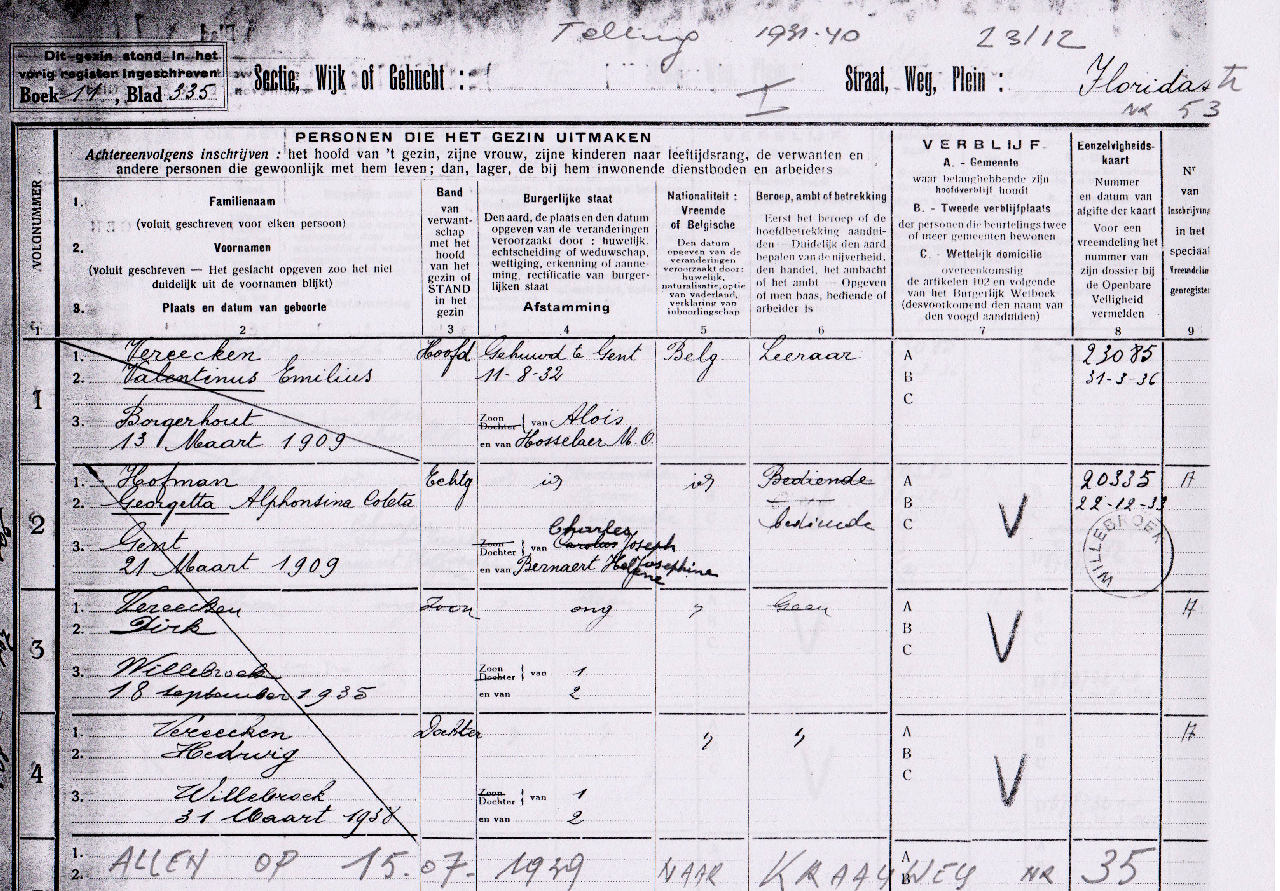 Telling 1931-40 23/12
Dit gezin stond in het
vorig register ingeschreven
Boek 11, Blad 335
Sectie, Wijk of Gehucht : I
Straat, Weg, Plein : Floridastr
NR 53
PERSONEN DIE HET GEZIN UITMAKEN
Achtereenvolgens inschrijven : het hoofd van 't gezin, zijne vrouw, zijne kinderen naar leeftijdsrang, de verwanten en
andere personen die gewoonlijk met hem leven; dan, lager, de bij hem inwonende dienstboden en arbeiders
VOLGNUMMER
1
1.
Familienaam
(voluit geschreven voor elken persoon)
2.
Voornamen
(voluit geschreven — Het geslacht opgeven zoo het niet
duidelijk uit de voornamen blijkt)
3.
Plaats en datum van geboorte
2
Band
van
verwant-
schap
met het
hoofd
van het
gezin of
STAND
in het
gezin
3
Burgerlijke staat
Den aard, de plaats en den datum
opgeven van de veranderingen
veroorzaakt door : huwelijk,
echtscheiding of weduwschap,
wettiging, erkenning of aanne-
ming, rectificatie van burger-
lijken staat
Afstamming
4
Nationaliteit :
Vreemde
of Belgische
Den datum
opgeven van de
veranderingen
veroorzaakt door:
huwelijk,
naturalisatie, optie
van vaderland,
verklaring van
inboorlingschap
5
Beroep, ambt of betrekking
Eerst het beroep of de
hoofdbetrekking aandui-
den — Duidelijk den aard
bepalen van de nijverheid,
den handel, het ambacht
of het ambt — Opgeven
of men baas, bediende of
arbeider is
6
VERBLIJF
A. - Gemeente
waar belanghebbende zijn
hoofdverblijf houdt
B. - Tweede verblijfplaats
der personen die beurtelings twee
of meer gemeenten bewonen
C. - Wettelijk domicilie
overeenkomstig
de artikelen 102 en volgende
van het Burgerlijk Wetboek
(desvoorkomend den naam van
den voogd aanduiden)
7
Eenzelvigheids-
kaart
Nummer
en datum van
afgifte der kaart
Voor een
vreemdeling het
nummer van
zijn dossier bij
de Openbare
Veiligheid
vermelden
8
Nr
van
inschrijving
in het
speciaal
9
1
1. Vereecken Hoofd Gehuwd te Gent Belg Leeraar A 23085
2. Valentinus Emilius 11-8-32 B 31-3-36
C
3. Borgerhout Zoon Dochter van Aloïs
13 Maart 1909 en van Hosselaer M. O.
2
1. Hofman Echtg id id Bediende A 20335 A
2. Georgetta Alphonsina Coleta B 22-12-33
bediende C V
Charles
3. Gent Zoon Dochter van Carolus Joseph
21 Maart 1909 en van Bernaert Helene Josephine
WILLEBROEK
3
1. Vereecken Zoon ong " Geen A A
2. Dirk B V
C
3. Willebroek Zoon Dochter van 1
18 september 1935 en van 2
4
1. Vereecken Dochter " " A A
2. Hedwig B
C V
3. Willebroek Zoon Dochter van 1
31 Maart 1938 en van 2
1. ALLEN OP 15-07-1939 NAAR KRAAYWEG NR 35 A
2. B